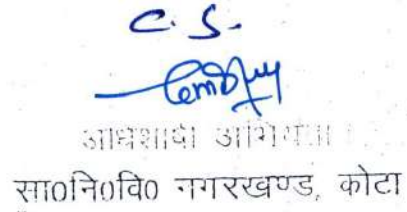 C. S.
अधिशाषी अभियन्ता
सा०नि०वि० नगरखण्ड, कोटा